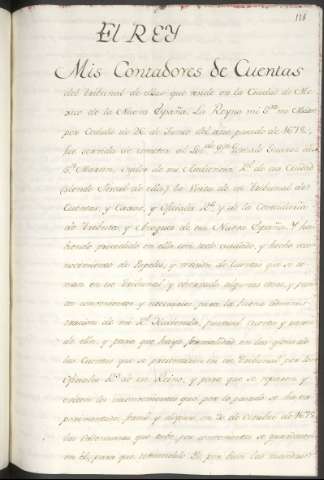 118
El REY
Mis Contadores de Cuentas
del Tribunal de ellas que reside en la Ciudad de Me
xico de la Nueva España. La Reyna mi Sra. mi Madre
por Cedula de 26 de Junio del año pasado de 1672
fue servida de cometer al
Sn Martin, Oydor de mi Audiencia Rl. de esa Ciudad
(siendo fiscal de ella) la Visita de ese Tribunal de
Cuentas, y Caxas, y Oficiales Rs. y de la Contaduria
de Tributos y Azogues de esa Nueva España. Y ha
viendo procedido en ella con todo cuidado, y hecho reco
nocimiento de Papeles, y razon de Cuentas que se to
man en ese Tribunal y obrado algunas cosas, y pun
tos convenientes y necesarios para la buena adminis
tracion de mi Rl. Hacienda,
de ella, y para que haya formalidad en las glosas de
las Cuentas que se presentan en ese Tribunal por los
Oficiales Rs. de ese Reino, y para que se reparen y
eviten los inconvenientes que por lo pasado se han ex
perimentado, formó y dispuso, en de Octubre de 1675
las Ordenanzas que
en él, para que teniendolo Yo por bien las mandase